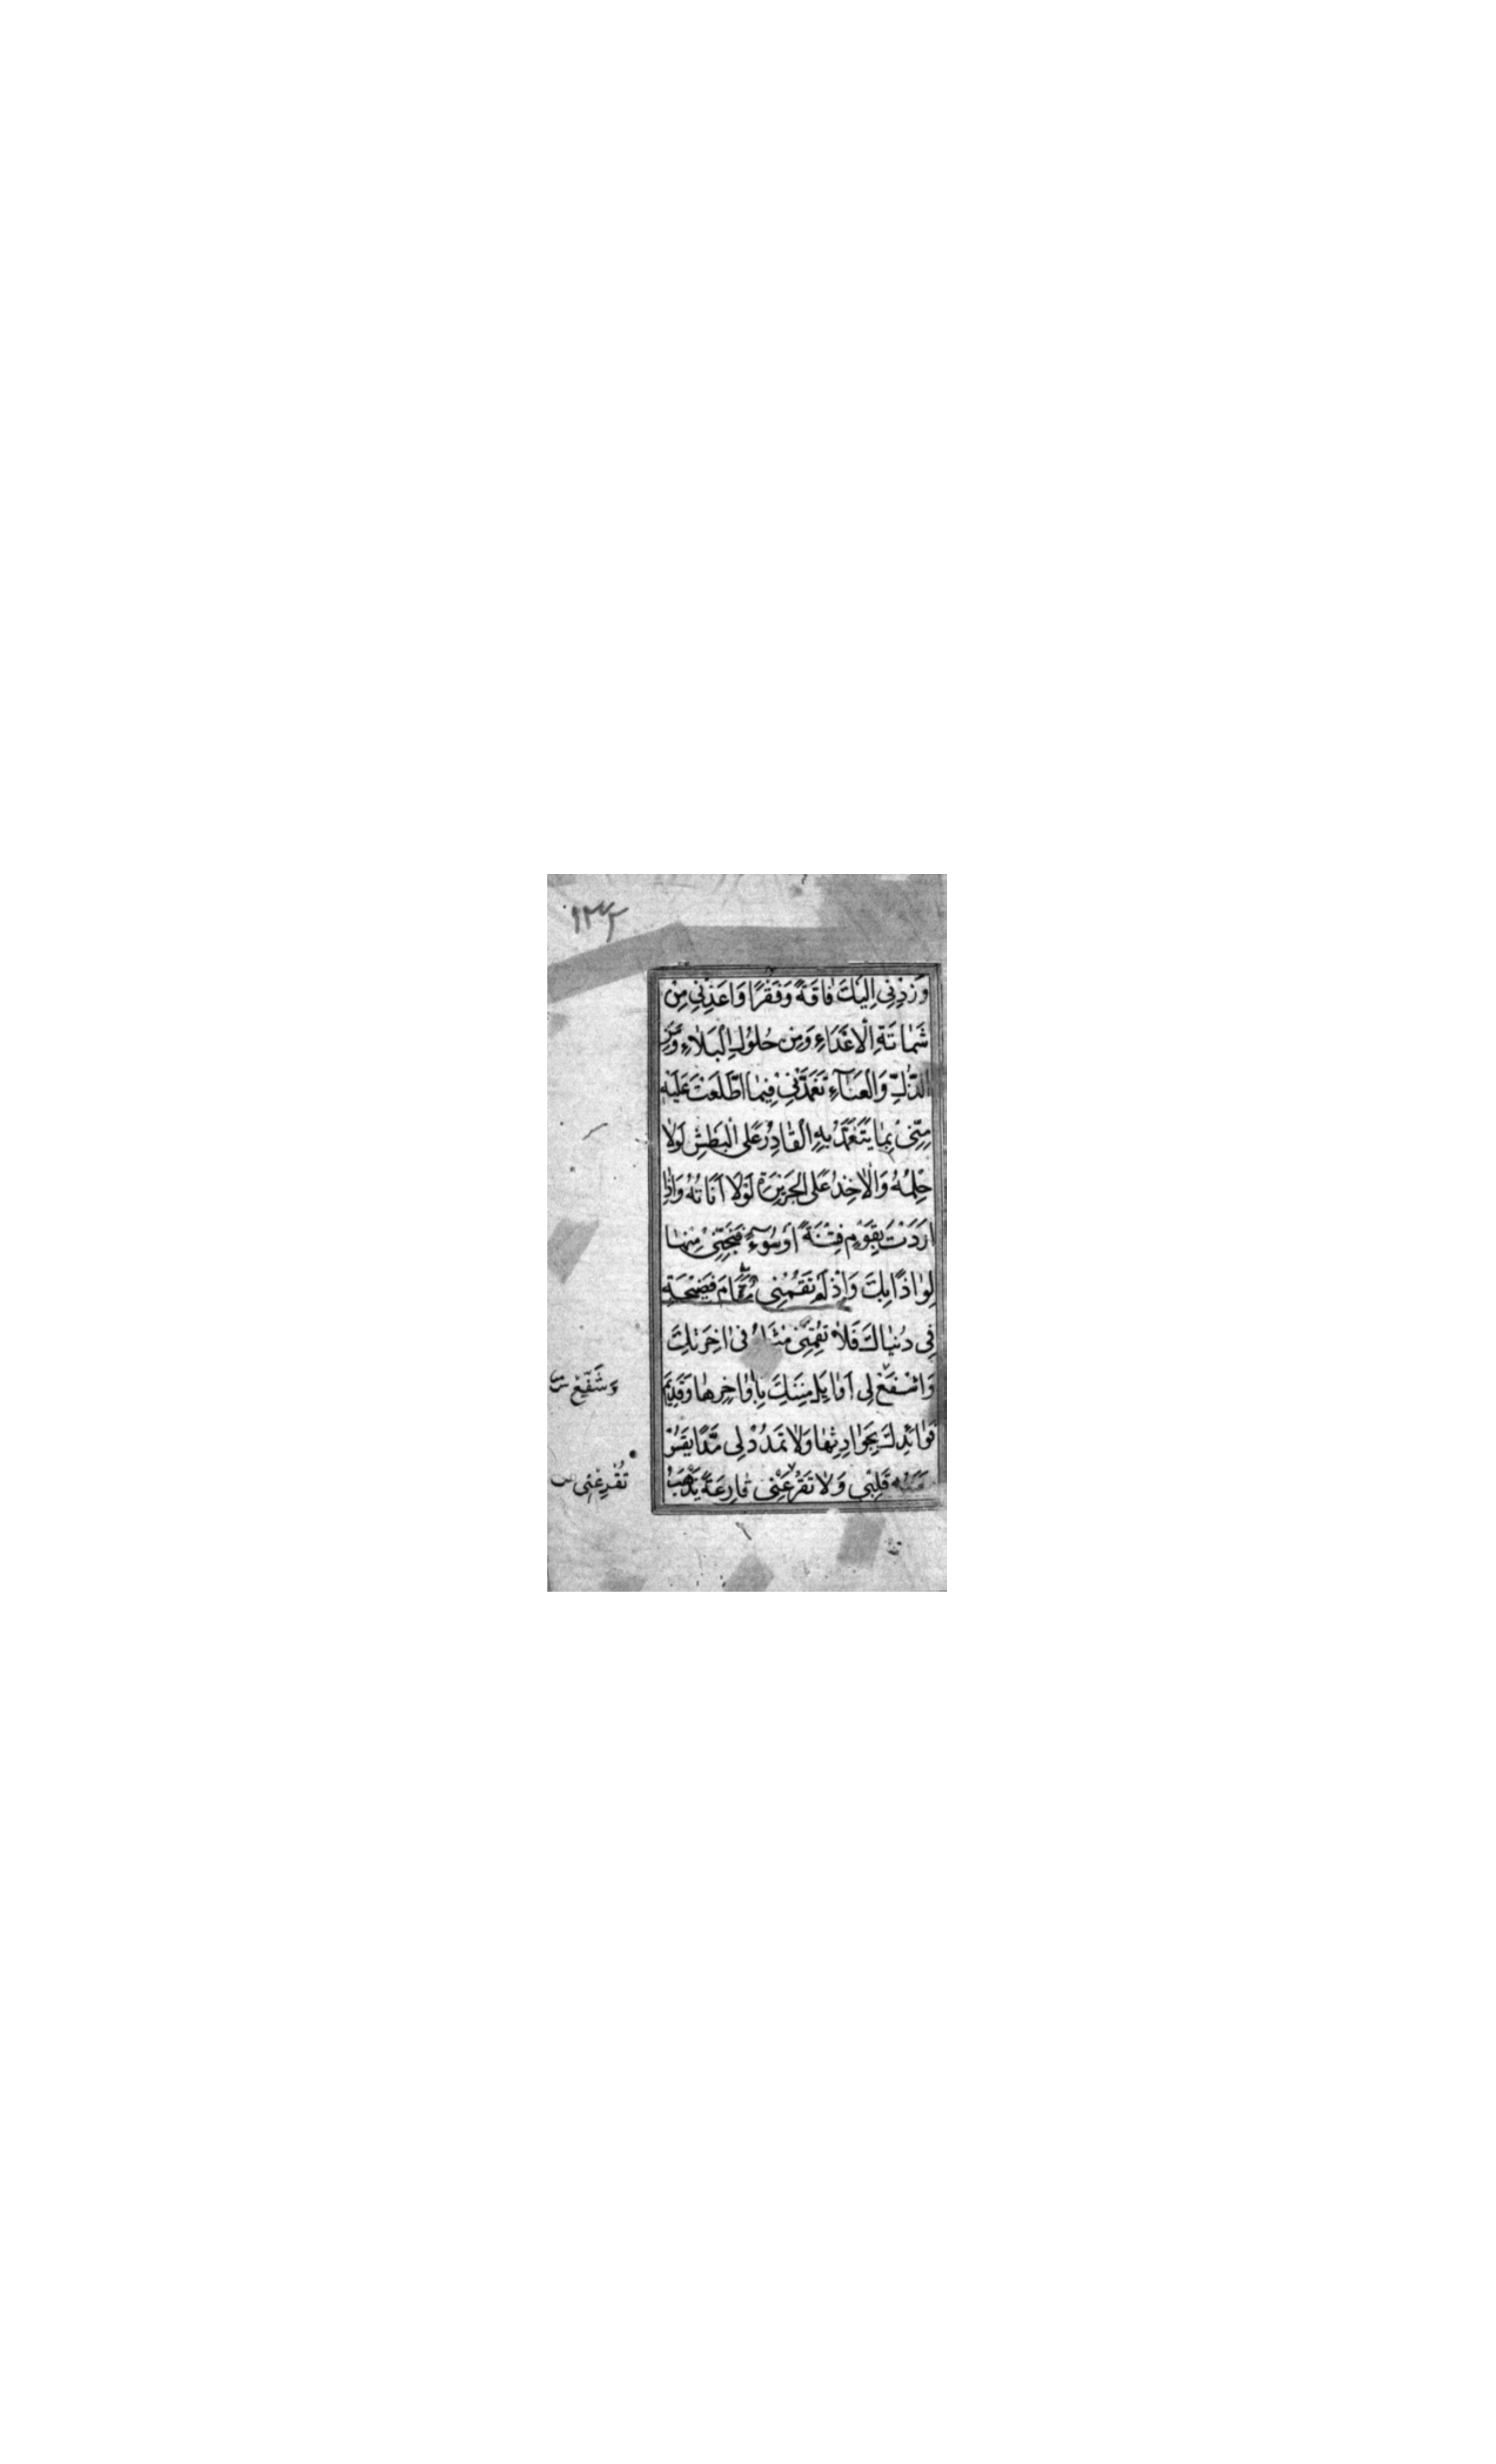 ١٣٢
وَزِدْنِي اِلَيْكَ فَاقَةً وَفَقْرًا وَاَعِذْنِي مِنْ
شَمَاتَةِ الْاَعْدَاءِ وَمِنْ حُلُولِ الْبَلَاءِ وَمِنَ
الذُّلِّ وَالْعَنَآءِ تَغَمَّدْنِي فِيمَا اطَّلَعْتَ عَلَيْهِ
مِنِّي بِمَا يَتَغَمَّدُ بِهِ الْقَادِرُ عَلَى الْبَطْشِ لَوْلَا
حِلْمُهُ وَالْاٰخِذُ عَلَى الْجَرِيرَةِ لَوْلَا اَنَاتُهُ وَاِذَا
اَرَدْتَ بِقَوْمٍ فِتْنَةً اَوْ سُوٓءً فَنَجِّنِي مِنْهَا
لِوَاذًا بِكَ وَاِذْ لَمْ تُقِمْنِي مَقَامَ فَضِيحَةٍ
فِي دُنْيَاكَ فَلَا تُقِمْنِي فِي اٰخِرَتِكَ
وَاشْفَعْ لِي اَوَايِلَ مِنَنِكَ بِاَوَاخِرِهَا وَقَدِيمَ
فَوَائِدِكَ بِحَوَادِثِهَا وَلَا تَمْدُدْ لِي مَدًّا يَقْسُو
مَعَهُ قَلْبِي وَلَا تَقْرَعْنِي قَارِعَةً يَذْهَبُ
وَشَفِّعْ س
تُقْرِعْنِي س